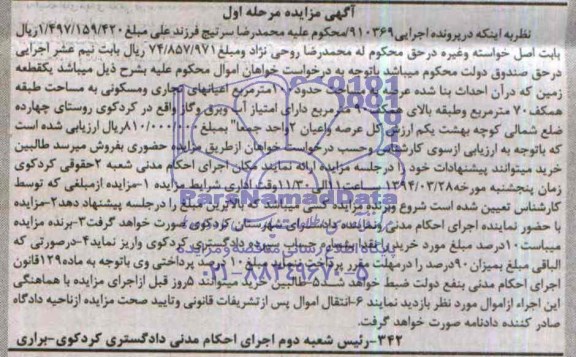 آگهی مزایده مرحله اول
نظربه اینکه درپرونده اجرایی۹۱۰۳۶۹/محکوم علیه محمدرضا سرتیچ فرزند علی مبلغ۱/۴۹۷/۱۵۹/۴۲۰ریال
بابت اصل خواسته وغیره درحق محکوم له محمدرضا روحی نژاد ومبلغ۷۴/۸۵۷/۹۷۱ ریال بابت نیم عشر اجرایی
درحق صندوق دولت محکوم میباشد باتوجه به درخواست خواهان اموال محکوم علیه بشرح ذیل میباشد یکقطعه
زمین که درآن احداث بنا شده عرصه به مساحت حدود ۱۰۰مترمربع اعیانهای تجاری ومسکونی به مساحت طبقه
همکف۷۰ مترمربع وطبقه بالای همکف۹۰ مترمربع دارای امتیاز آب وبرق وگاز واقع در کردکوی روستای چهارده
ضلع شمالی کوچه بهشت یکم ارزش کل عرصه واعیان ۲واحد جمعا" بمبلغ ۸۱۰/۰۰۰/۰۰۰ریال ارزیابی شده است
که باتوجه به ارزیابی ازسوی کارشناس وحسب درخواست خواهان ازطریق مزایده حضوری بفروش میرسد طالبین
خرید میتوانند پیشنهادات خود را درجلسه مزایده ارائه نمایند مکان اجرای احکام مدنی شعبه ۲حقوقی کردکوی
زمان پنجشنبه مورخه۱۳۹۴/۰۳/۲۸ ساعت۱۱الی۱۱/۳۰وقت اداری شرایط مزایده ۱-مزایده ازمبلغی که توسط
کارشناس تعیین شده است شروع وبرنده مزایده کسی میباشد که بالاترین مبلغ را درجلسه پیشنهاد دهد۲-مزایده
با حضور نماینده اجرای احکام مدنی ونماینده دادسرای شهرستان کردکوی صورت خواهد گرفت۳-برنده مزایده
میباست۱۰درصد مبلغ مورد خرید را نقدا بشماره حساب سپرده دادگستری کردکوی واریز نماید۴-درصورتی که
الباقی مبلغ بمیزان ۹۰درصد را درمهلت مقرر پرداخت ننماید مبلغ ۱۰ درصد پرداختی وی باتوجه به ماده۱۲۹قانون
اجرای احکام مدنی بنفع دولت ضبط خواهد شد۵-طالبین خرید میتوانند ۵روز قبل ازاجرای مزایده با هماهنگی
این اجراء ازاموال مورد نظر بازدید نمایند ۶-انتقال اموال پس ازتشریفات قانونی وتایید صحت مزایده ازناحیه دادگاه
صادر کننده دادنامه صورت خواهد گرفت.
۳۴۲-رئیس شعبه دوم اجرای احکام مدنی دادگستری کردکوی-براری
ParsNamadData
۰۲۱-۸۸۳۴۹۶۷۰-۵